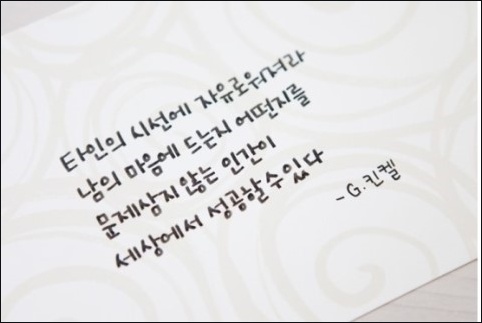 타인의 시선에 자유로워져라
남의 마음에 드는지 어떤지를
문제삼지 않는 인간이
세상에서 성공할수있다
-G.킨켈